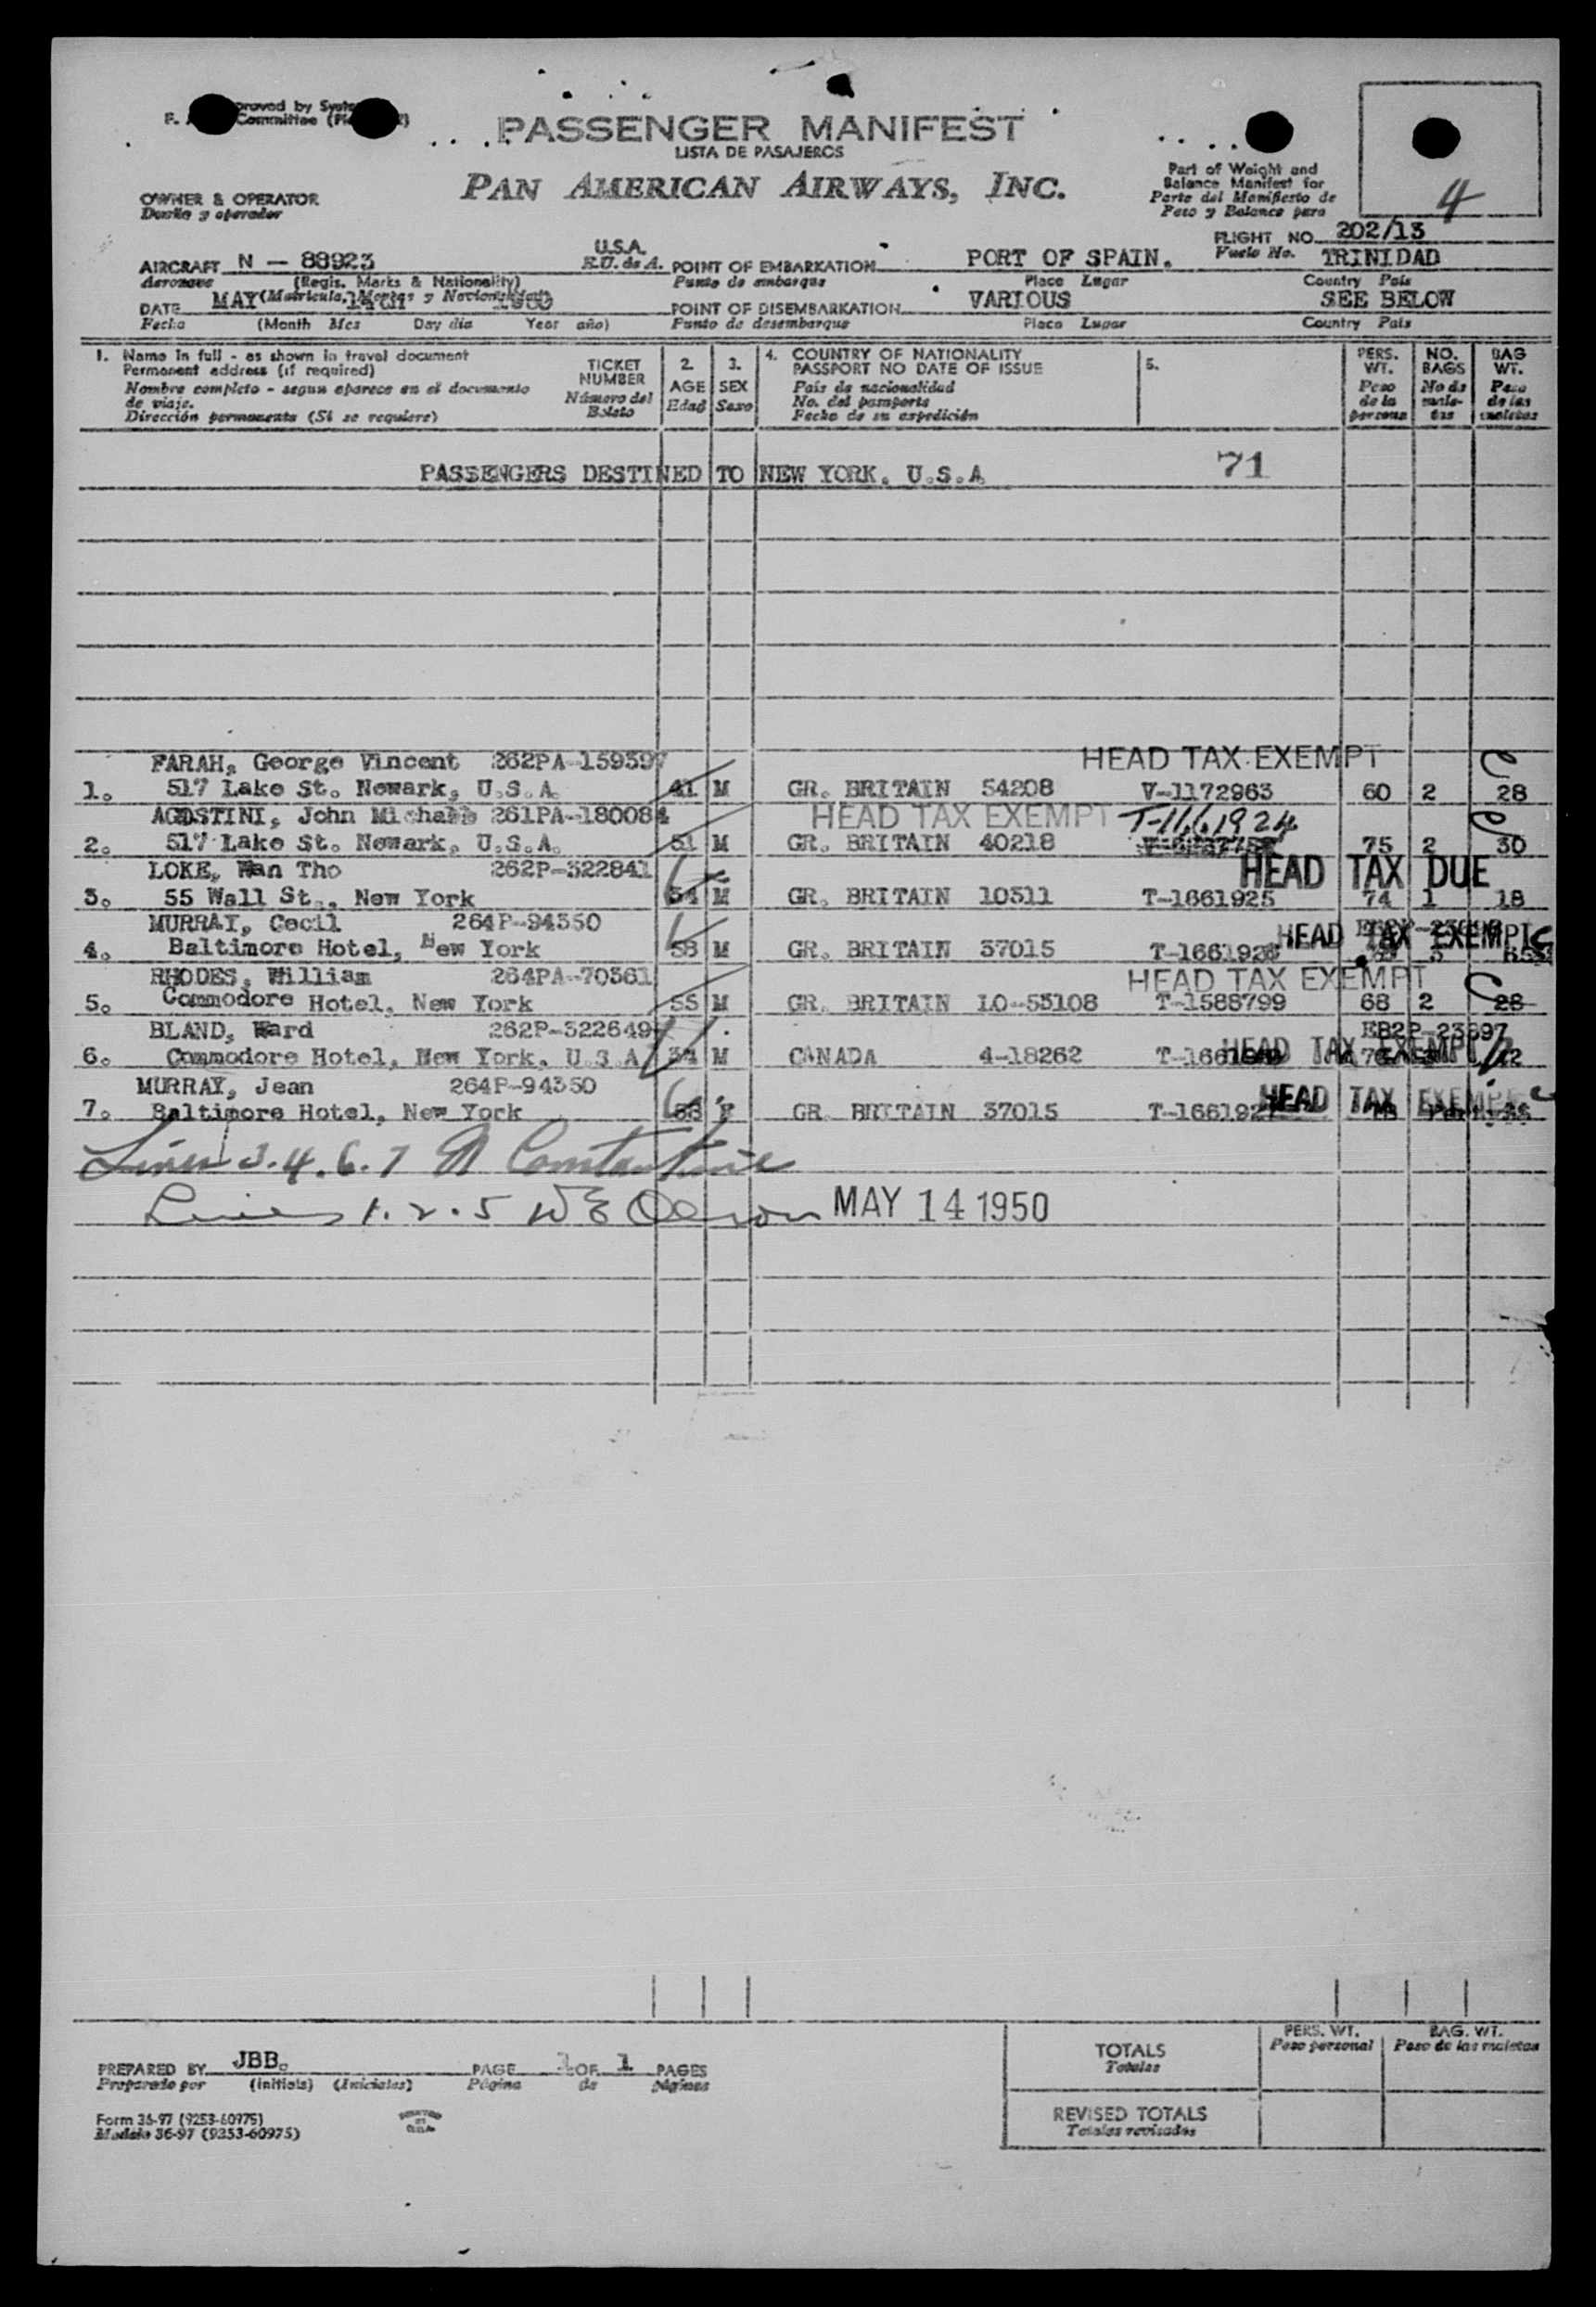 PASSENGER MANIFEST
LISTA DE PASAJEROS
PAN AMERICAN AIRWAYS, INC.
OWNER & OPERATOR
Dueño y operador
Part of Weight and
Balance Manifest for
Parte del Manifiesto de
Peso y Balance para
4
FLIGHT NO. 202/13
Vuelo No.
AIRCRAFT N - 88923 U.S.A. POINT OF EMBARKATION PORT OF SPAIN. TRINIDAD
Aeronave (Regis. Marks & Nationality) E.U. de A. Punto de embarque Place Lugar Country Pais
DATE MAY 14th 1950 POINT OF DISEMBARKATION VARIOUS SEE BELOW
Fecha (Month Mes Day dia Year año) Punto de desembarque Place Lugar Country Pais
1. Name in full - as shown in travel document
Permanent address (if required)
Nombre completo - segun aparece en el documento
de viaje.
Dirección permanente (Si se requiere)
TICKET
NUMBER
Número del
Boleto
2.
AGE
Edad
3.
SEX
Sexo
4. COUNTRY OF NATIONALITY
PASSPORT NO DATE OF ISSUE
País de nacionalidad
No. del pasaporte
Fecha de su expedición
5.
PERS.
WT.
Peso
de la
persona
NO.
BAGS
No de
male-
tas
BAG
WT.
Peso
de las
maletas
PASSENGERS DESTINED TO NEW YORK. U.S.A 71
FARAH, George Vincent 262PA-159397 HEAD TAX EXEMPT
1. 517 Lake St. Newark, U.S.A. 41 M GR. BRITAIN 54208 V-1172963 60 2 28
AGOSTINI, John 261PA-180084 HEAD TAX EXEMPT T-1661924
2. 517 Lake St. Newark, U.S.A. 51 M GR. BRITAIN 40218 75 2 30
LOKE, Wan Tho 262P-322841 HEAD TAX DUE
3. 55 Wall St., New York 34 M GR. BRITAIN 10311 T-1661925 74 1 18
MURRAY, Cecil 264P-94350 HEAD TAX EXEMPT
4. Baltimore Hotel, New York 58 M GR. BRITAIN 37015 T-1661926
RHODES, William 264PA-70361 HEAD TAX EXEMPT
5. Commodore Hotel, New York 55 M GR. BRITAIN LO-55108 T-1588799 68 2 28
BLAND, Ward 262P-322649 EB2P-23697
6. Commodore Hotel, New York, U.S.A 34 M CANADA 4-18262 HEAD TAX EXEMPT
MURRAY, Jean 264P-94350 HEAD TAX EXEMPT
7. Baltimore Hotel, New York F GR. BRITAIN 37015 T-1661927
Lines 3.4.6.7 Constantine
Lines 1.2.5 W E Olerson MAY 14 1950
PERS. WT. BAG. WT.
Peso personal Peso de las maletas
TOTALS
Totales
REVISED TOTALS
Totales revisados
PREPARED BY JBB. PAGE 1 OF 1 PAGES
Preparado por (Initials) (Iniciales) Página de páginas
Form 36-97 (9253-60975)
Modelo 36-97 (9253-60975)
PRINTED
IN
U.S.A.